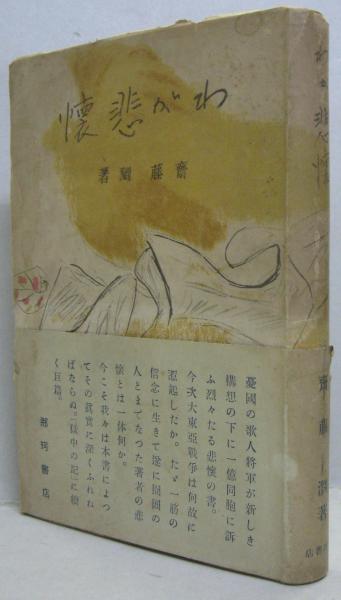 わが悲懐
齋藤瀏著
憂國の歌人將軍が新しき
構想の下に一億同胞に訴
ふ烈々たる悲懐の書。
今次大東亞戰爭は何故に
惹起したか。たゞ一筋の
信念に生きて遂に囹圄の
人とまでなつた著者の悲
懐とは一体何か。
今こそ我々は本書によつ
てその眞實に深くふれね
ばならぬ。「獄中の記」に續
く巨篇。
那珂書店
わが悲懐
齋藤瀏著